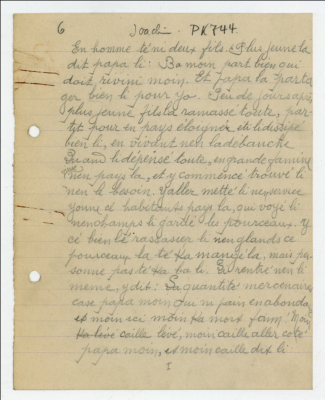 6 Joachim. PK744
En homme té ni deux fils. Plus jeune la
dit papa li: Ba moin part bien qui
doit rivini moin. Et papa la parta
ger bien li pour yo. Peu de jours après,
plus jeune fils la ramassé toute, par-
tit pour en pays éloigné et li dissipé
bien li, en vivant nen la débauche
Quand li dépensé toute, en grande famine
vien pays la, et y commencé trouvé li
nen le besoin. Y aller mette li ne service
yonne cé habitants pays la, qui voyé li
nen champs li gardé les pourceaux. Y
cé bien lé rassasier li nen glands cé
pourceaux la té ka mangé la, mais per-
sonne pas té ka ba li. Li rentré nen li
même, y dit: En quantité mercenaires
case papa moin qui ni pain en abondance
et moin ici moin ka mort faim. Moin
ka levé caille levé, moin caille aller coté
papa moin, et moin caille dit li
I